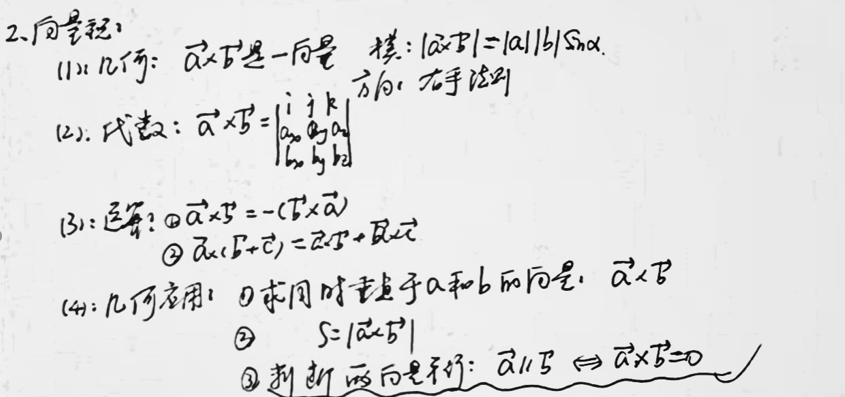 2、向量积:
(1): 几何: a⃗×b⃗是一向量 模: |a⃗×b⃗|=|a||b|sinα.
方向: 右手法则
(2). 代数: a⃗×b⃗=|i j k|
|ax ay az|
|bx by bz|
(3): 运算: ① a⃗×b⃗=-(b⃗×a⃗)
② a⃗×(b⃗+c⃗)=a⃗×b⃗+a⃗×c⃗
(4): 几何应用: ①求同时垂直于a和b的向量: a⃗×b⃗
② S=|a⃗×b⃗|
③ 判断两向量平行: a⃗∥b⃗ ⇔ a⃗×b⃗=0